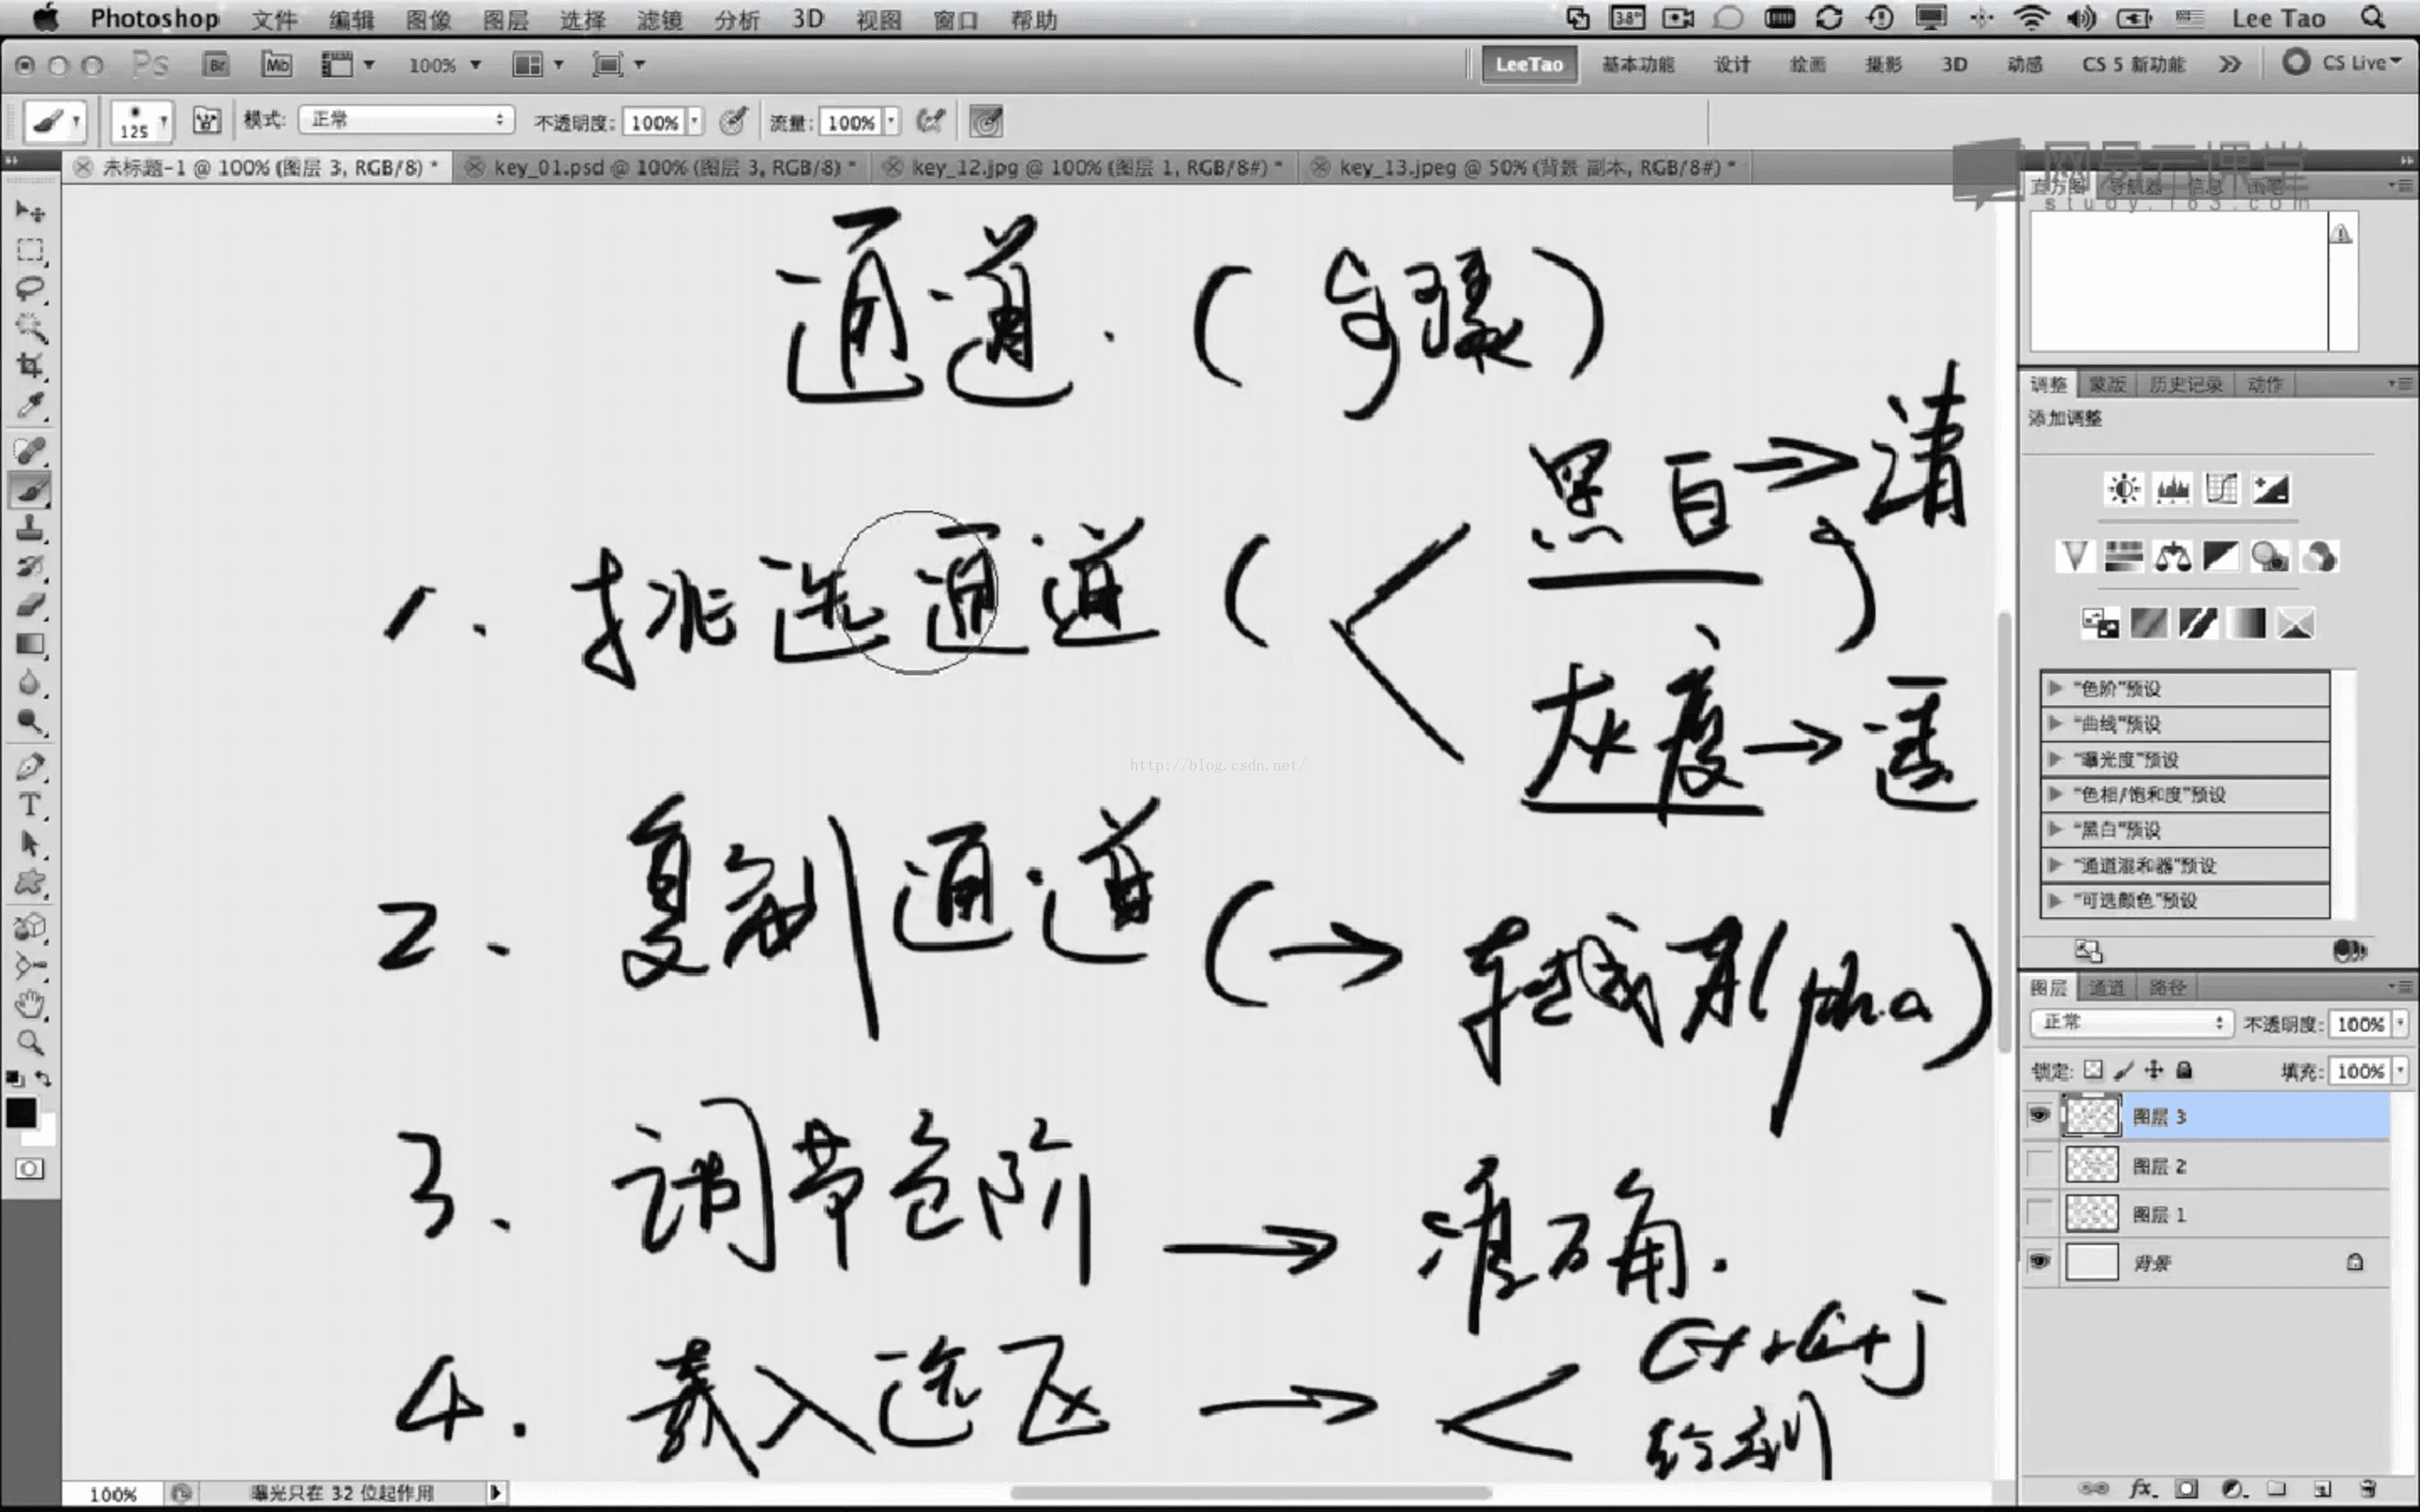 Photoshop 文件 编辑 图像 图层 选择 滤镜 分析 3D 视图 窗口 帮助 Lee Tao
Ps Br Mb 100% LeeTao 基本功能 设计 绘画 摄影 3D 动感 CS 5 新功能 CS Live
125 模式: 正常 不透明度: 100% 流量: 100%
未标题-1 @ 100% (图层 3, RGB/8) * key_01.psd @ 100% (图层 3, RGB/8) * key_12.jpg @ 100% (图层 1, RGB/8#) * key_13.jpeg @ 50% (背景 副本, RGB/8#) *
网易云课堂
study.163.com
直方图 导航器 信息 画笔
通道.(步骤)
1. 挑选通道 (
黑白 → 清
灰度 → 透
)
2. 复制通道 ( → 转成 Alpha)
3. 调节色阶 → 准确.
4. 载入选区 →
Ctrl+j
给到
http://blog.csdn.net/
调整 蒙版 历史记录 动作
添加调整
"色阶"预设
"曲线"预设
"曝光度"预设
"色相/饱和度"预设
"黑白"预设
"通道混和器"预设
"可选颜色"预设
图层 通道 路径
正常 不透明度: 100%
锁定: 填充: 100%
图层 3
图层 2
图层 1
背景
fx
100% 曝光只在 32 位起作用